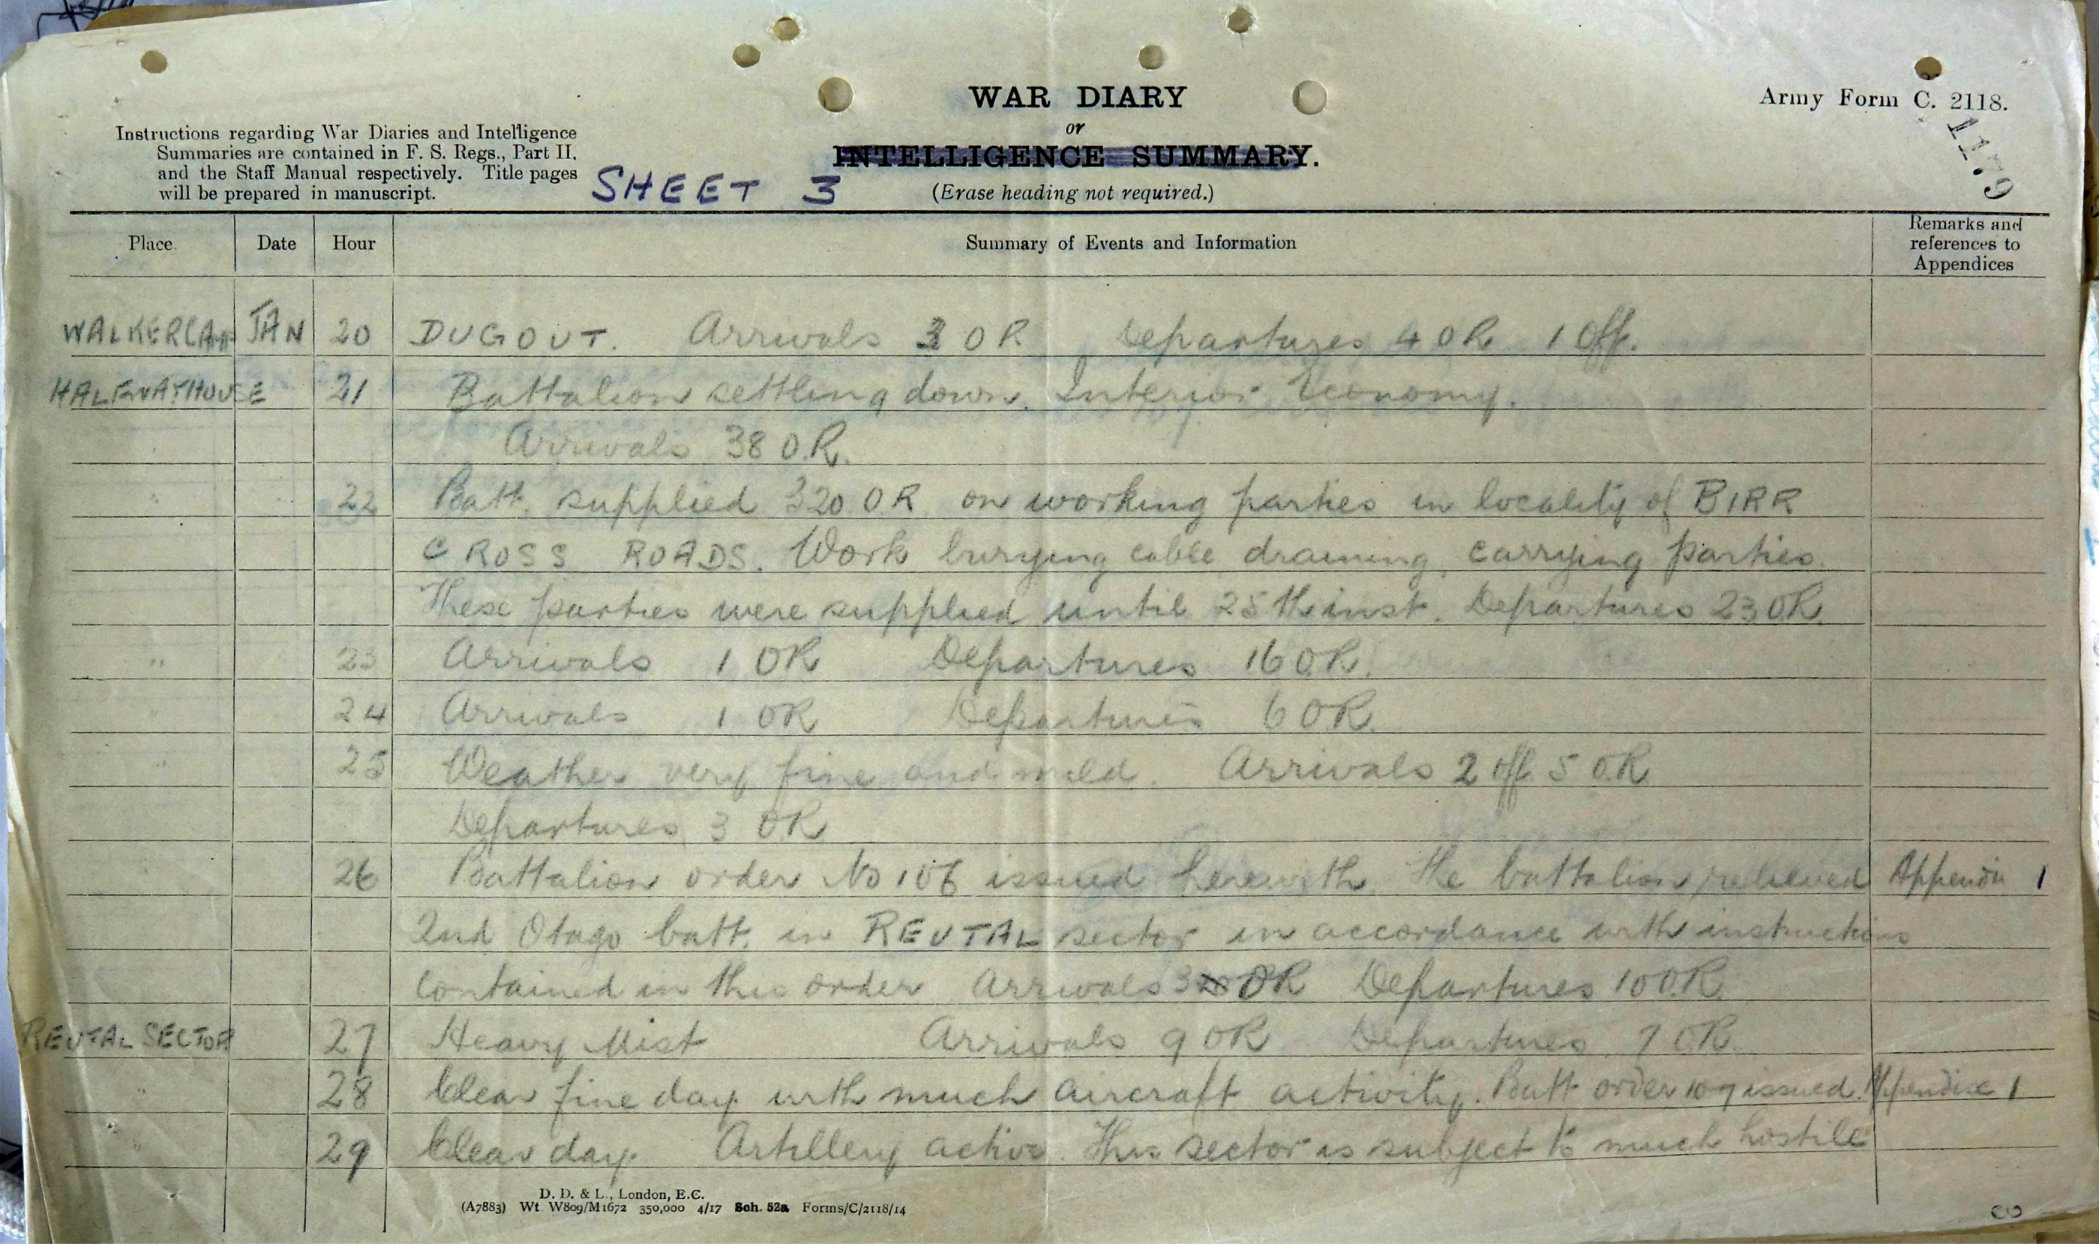 WAR DIARY
or
INTELLIGENCE SUMMARY.
(Erase heading not required.)
Army Form C. 2118.
1179
Instructions regarding War Diaries and Intelligence
Summaries are contained in F. S. Regs., Part II.
and the Staff Manual respectively. Title pages
will be prepared in manuscript.
SHEET 3
Place Date Hour Summary of Events and Information Remarks and references to Appendices
WALKER CAMP JAN 20 DUGOUT. Arrivals 3 OR Departures 4 OR 1 Off.
HALFWAY HOUSE 21 Battalion settling down. Interior Economy.
Arrivals 38 O.R.
" 22 Batt. supplied 320 OR on working parties in locality of BIRR
CROSS ROADS. Work burying cable draining, carrying parties
These parties were supplied until 25th inst. Departures 23 OR.
" 23 Arrivals 1 OR Departures 16 OR.
" 24 Arrivals 1 OR Departures 6 OR.
" 25 Weather very fine and mild. Arrivals 2 off 5 OR
Departures 3 OR
26 Battalion order No 106 issued herewith. The battalion relieved Appendix 1
2nd Otago batt. in REUTAL sector in accordance with instructions
contained in this order Arrivals 3 OR Departures 10 OR.
REUTAL SECTOR 27 Heavy Mist Arrivals 9 OR Departures 7 OR.
" 28 Clear fine day with much aircraft activity. Batt order 107 issued. Appendix 1
" 29 Clear day. Artillery active. This sector is subject to much hostile
D. D. & L., London, E.C.
(A7883) Wt. W809/M1672 350,000 4/17 Sch. 52a Forms/C/2118/14